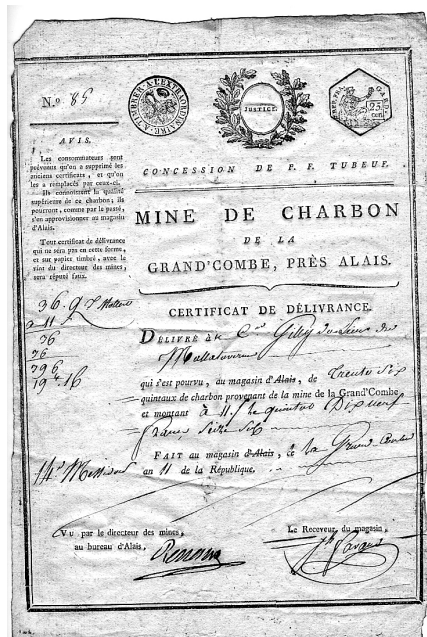 N.º 85
A TIMBRER A L'EXTRAORDINAIRE
JUSTICE
REP. FRA.
GARD
25
cen.
AVIS.
Les consommateurs sont
prévenus qu'on a supprimé les
anciens certificats, et qu'on
les a remplacés par ceux-ci.
Ils connoissent la qualité
supérieure de ce charbon; ils
pourront, comme par le passé,
s'en approvisionner au magasin
d'Alais.
Tout certificat de délivrance
qui ne sera pas en cette forme,
et sur papier timbré, avec le
visa du directeur des mines,
sera réputé faux.
36. q
à 11 s
36
36
396
19 16
14 Messidor
CONCESSION DE F. F. TUBEUF.
MINE DE CHARBON
DE LA
GRAND'COMBE, PRÈS ALAIS.
CERTIFICAT DE DÉLIVRANCE.
DÉLIVRÉ à Cen Gilly
qui s'est pourvu, au magasin d'Alais, de Trente Six
quintaux de charbon provenant de la mine de la Grand'Combe
et montant à 11 s le quintal Dix neuf
francs Seize
FAIT au magasin d'Alais, ce la Grand Combe
an 11 de la République.
VU par le directeur des mines,
au bureau d'Alais,
Le Receveur du magasin,